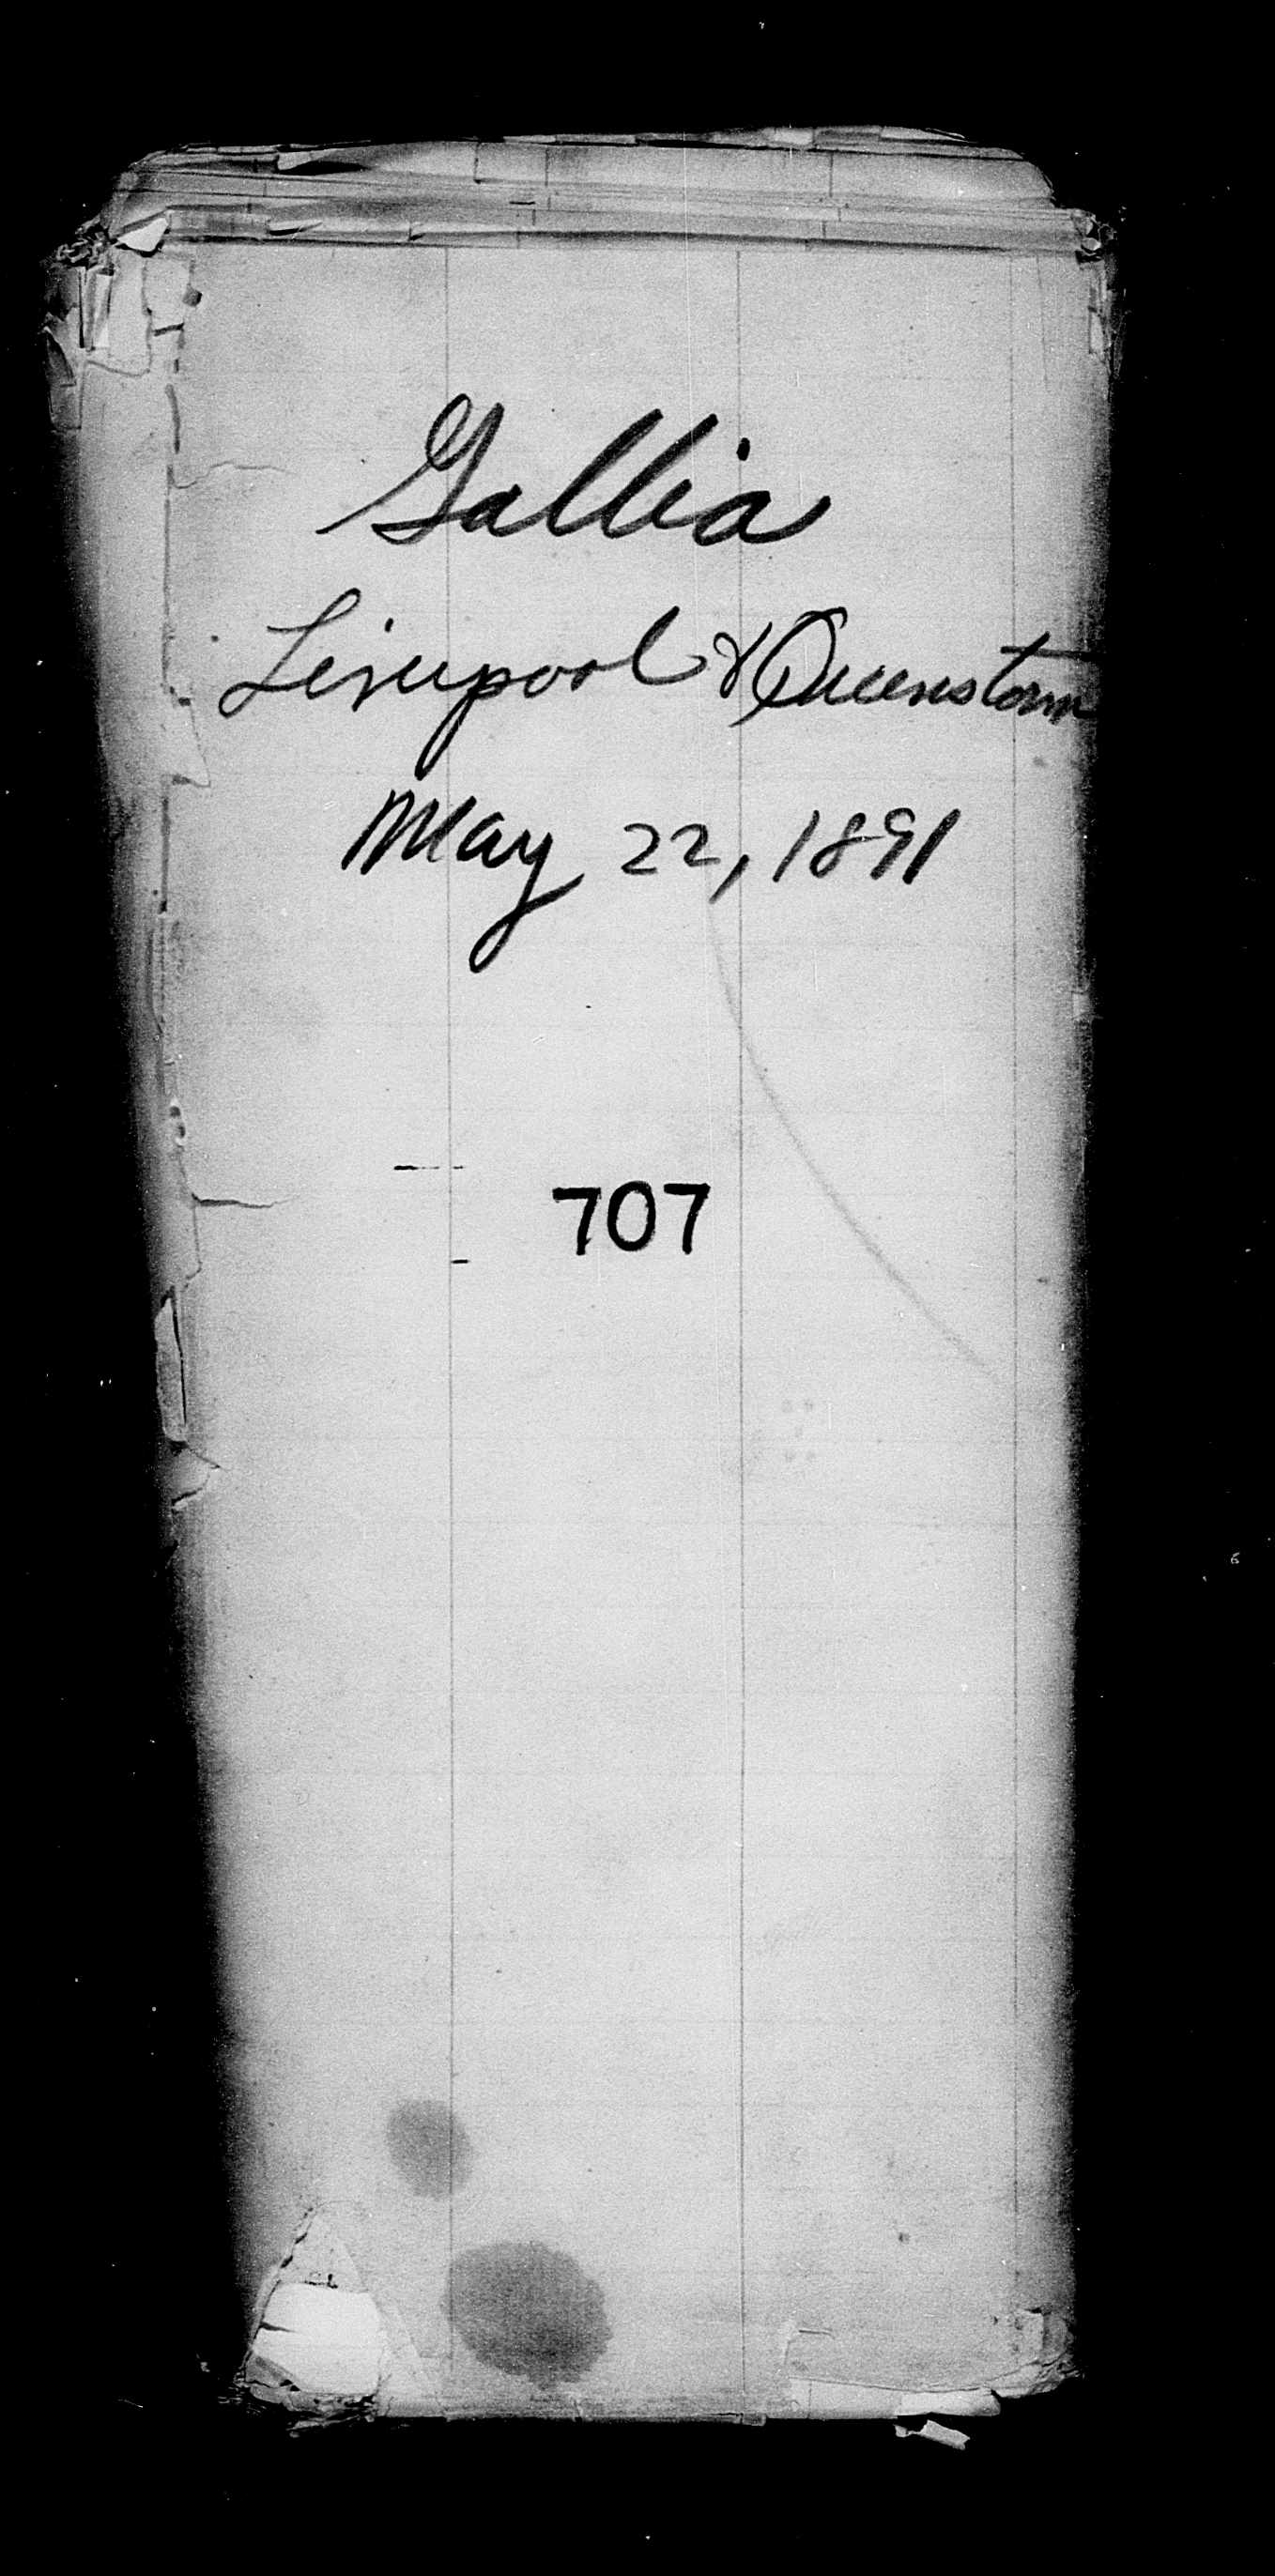 Gallia
Liverpool & Queenstown
May 22, 1891
707